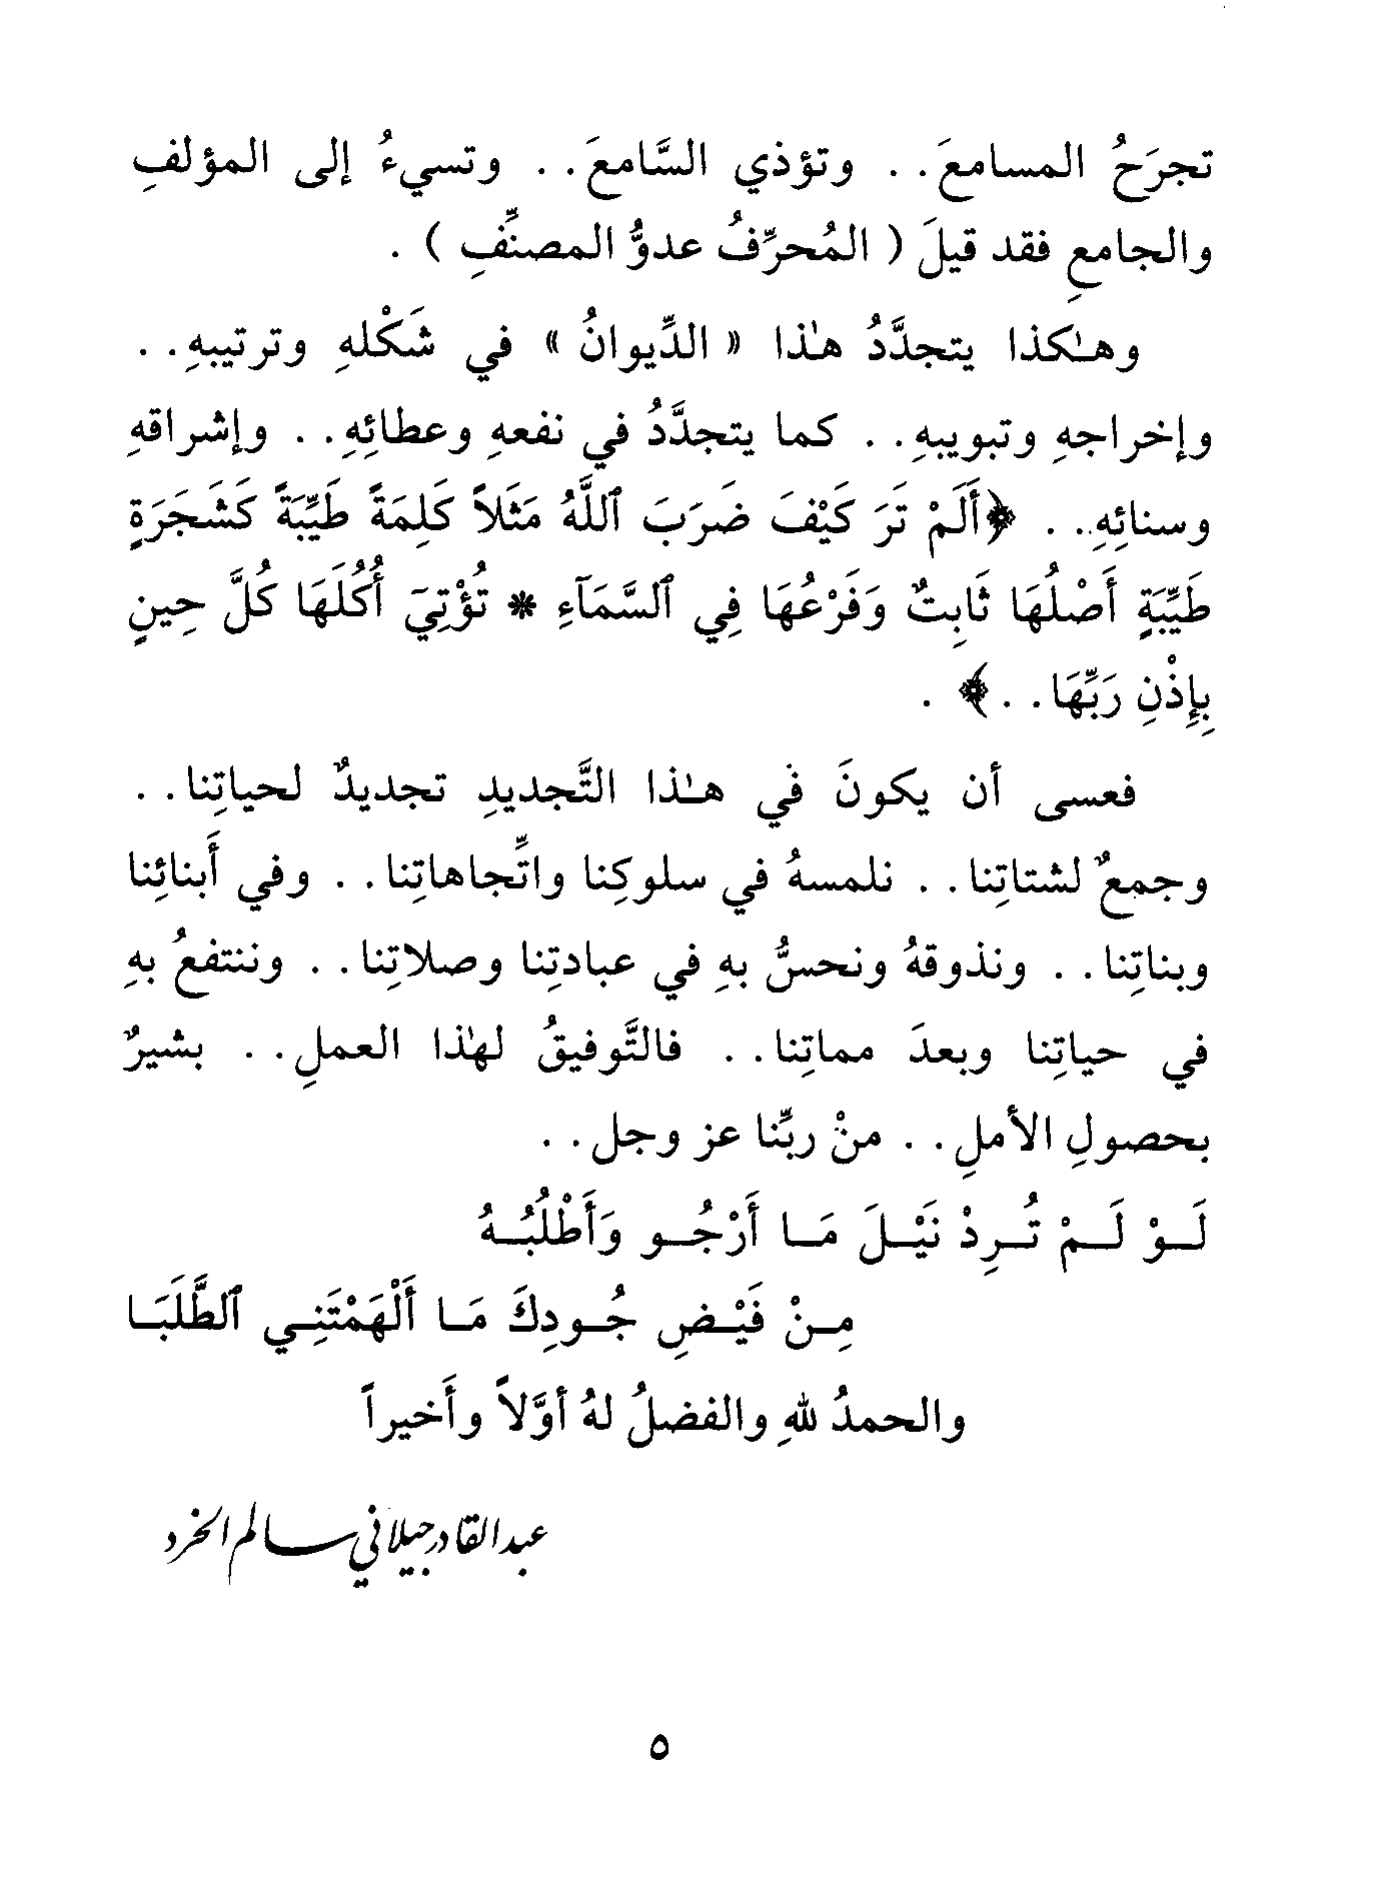 تجرَحُ المسامعَ . . وتؤذي السَّامعَ . . وتسيءُ إلى المؤلفِ
والجامعِ فقد قيلَ ( المُحرِّفُ عدوُّ المصنِّفِ ) .
وهـٰكذا يتجدَّدُ هـٰذا « الدِّيوانُ » في شَكْلهِ وترتيبهِ . .
وإخراجهِ وتبويبهِ . . كما يتجدَّدُ في نفعهِ وعطائِهِ . . وإشراقهِ
وسنائِهِ . . ﴿أَلَمْ تَرَ كَيْفَ ضَرَبَ ٱللَّهُ مَثَلاً كَلِمَةً طَيِّبَةً كَشَجَرَةٍ
طَيِّبَةٍ أَصْلُهَا ثَابِتٌ وَفَرْعُهَا فِي ٱلسَّمَآءِ * تُؤْتِيٓ أُكُلَهَا كُلَّ حِينٍ
بِإِذْنِ رَبِّهَا . . ﴾ .
فعسى أن يكونَ في هـٰذا التَّجديدِ تجديدٌ لحياتِنا . .
وجمعٌ لشتاتِنا . . نلمسهُ في سلوكِنا واتِّجاهاتِنا . . وفي أَبنائِنا
وبناتِنا . . ونذوقهُ ونحسُّ بهِ في عبادتِنا وصلاتِنا . . وننتفعُ بهِ
في حياتِنا وبعدَ مماتِنا . . فالتَّوفيقُ لهٰذا العملِ . . بشيرٌ
بحصولِ الأملِ . . منْ ربِّنا عز وجل . .
لَـوْ لَـمْ تُـرِدْ نَيْـلَ مَـا أَرْجُـو وَأَطْلُبُـهُ
مِـنْ فَيْـضِ جُـودِكَ مَـا أَلْهَمْتَنِـي ٱلطَّلَبَـا
والحمدُ للهِ والفضلُ لهُ أوَّلاً وأَخيراً
عبد القادر جيلاني سالم الخرد
٥